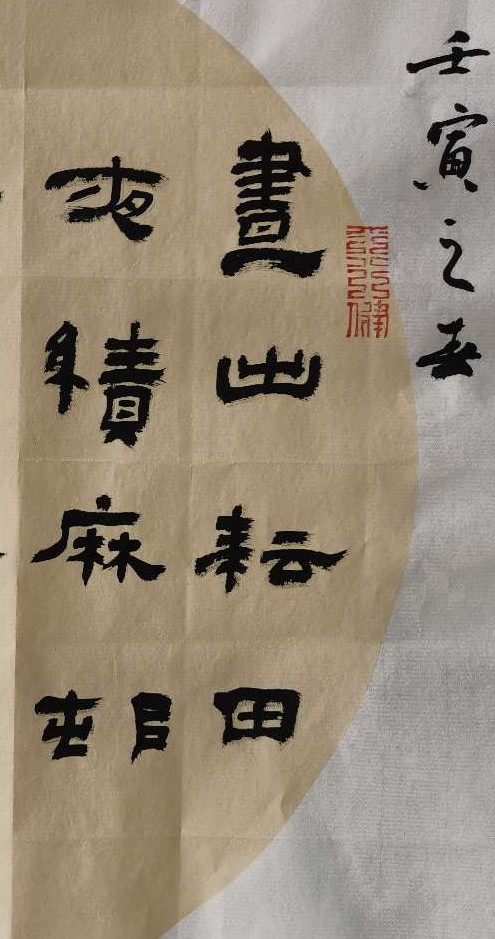 壬寅之春
晝出耘田
夜績麻邨